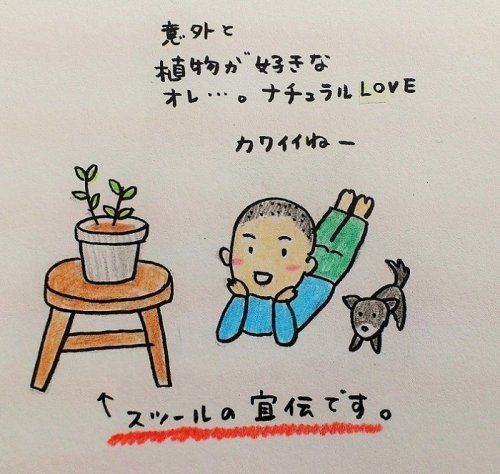 意外と
植物が好きな
オレ…。ナチュラルLOVE
カワイイねー
↑スツールの宣伝です。